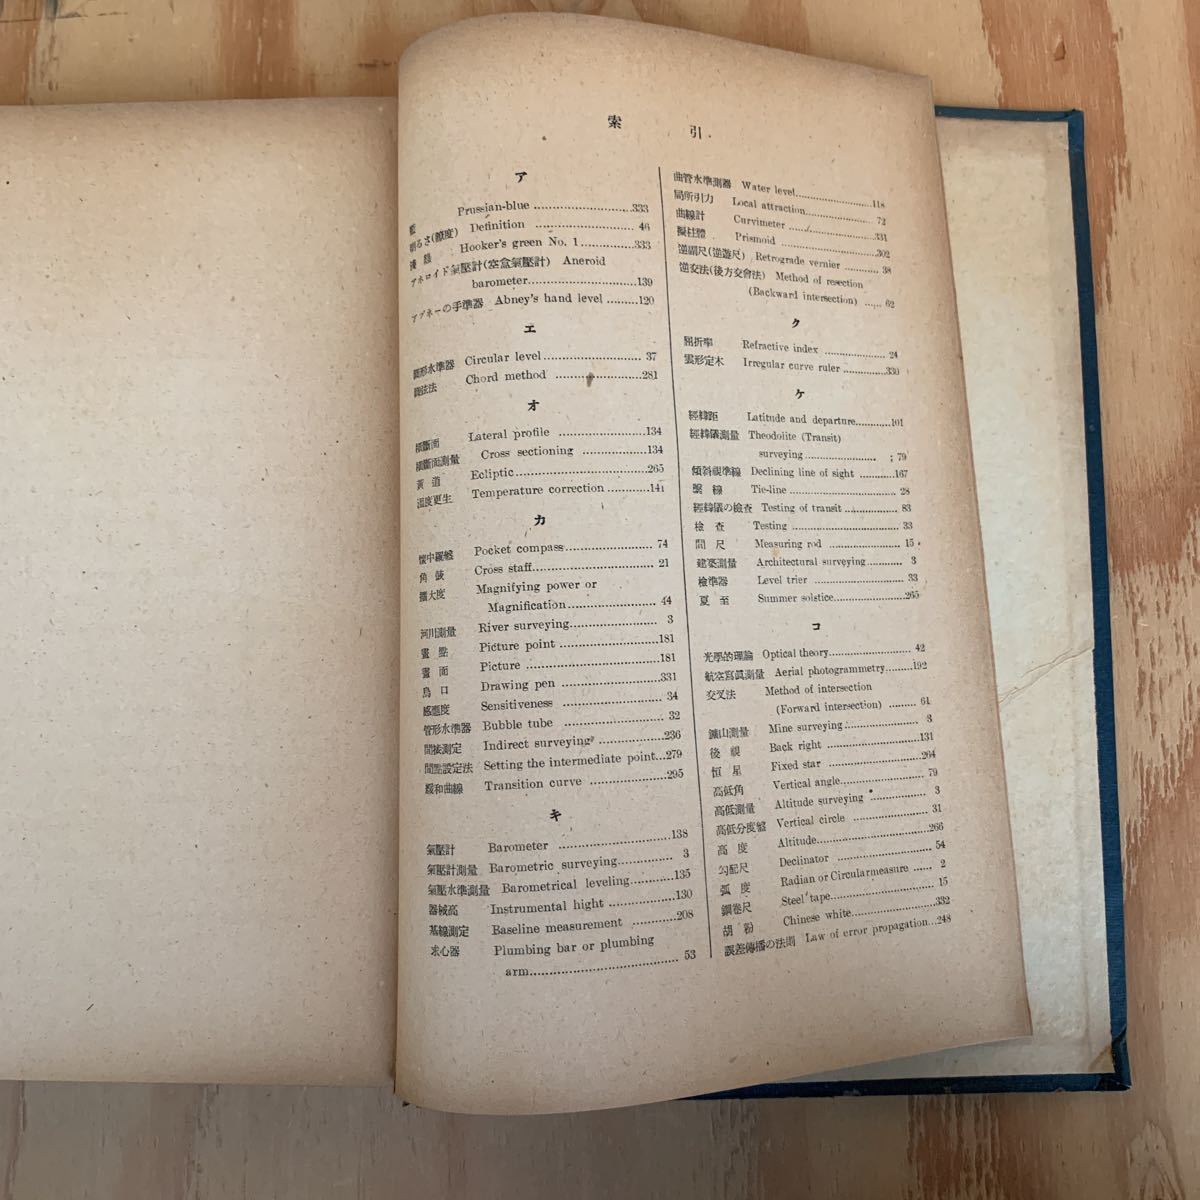 索引
ア
藍 Prussian-blue ........................333
明るさ(瞭度) Definition ........................ 46
淺緑 Hooker's green No. 1.............333
アネロイド氣壓計(空盒氣壓計) Aneroid
barometer...........................139
アブネーの手準器 Abney's hand level .........120
エ
圓形水準器 Circular level........................ 37
圓弦法 Chord method ......................281
オ
横斷面 Lateral profile ......................134
横斷面測量 Cross sectioning ................134
黃道 Ecliptic.................................265
溫度更生 Temperature correction...........141
カ
懷中羅盤 Pocket compass...................... 74
角 Cross staff.............................. 21
擴大度 Magnifying power or
Magnification...................... 44
河川測量 River surveying...................... 3
畫點 Picture point .........................181
畫面 Picture .................................181
烏口 Drawing pen .........................331
感應度 Sensitiveness ........................ 34
管形水準器 Bubble tube ........................ 32
間接測定 Indirect surveying ................236
間點設定法 Setting the intermediate point...279
緩和曲線 Transition curve ...................295
キ
氣壓計 Barometer ............................138
氣壓計測量 Barometric surveying............. 3
氣壓水準測量 Barometrical leveling............135
器械高 Instrumental hight ................130
基線測定 Baseline measurement ...........208
求心器 Plumbing bar or plumbing
arm..................................... 53
曲管水準測器 Water level...................118
局所引力 Local attraction.................. 72
曲線計 Curvimeter ........................331
擬柱體 Prismoid ...........................302
逆副尺(逆遊尺) Retrograde vernier ......... 38
逆交法(後方交會法) Method of resection
(Backward intersection) ..... 62
ク
屈折率 Refractive index .................. 24
雲形定木 Irregular curve ruler ............330
ケ
經緯距 Latitude and departure............101
經緯儀測量 Theodolite (Transit)
surveying........................ 79
傾斜視準線 Declining line of sight .........167
繫線 Tie-line .............................. 28
經緯儀の檢査 Testing of transit ............... 83
檢査 Testing .............................. 33
間尺 Measuring rod ..................... 15
建築測量 Architectural surveying............ 3
檢準器 Level trier ........................ 33
夏至 Summer solstice.....................265
コ
光學的理論 Optical theory..................... 42
航空寫眞測量 Aerial photogrammetry.........192
交叉法 Method of intersection
(Forward intersection) ......... 61
鑛山測量 Mine surveying..................... 3
後視 Back right ........................131
恒星 Fixed star ........................264
高低角 Vertical angle..................... 79
高低測量 Altitude surveying ............... 3
高低分度盤 Vertical circle .................. 31
高度 Altitude..............................266
勾配尺 Declinator ........................ 54
弧度 Radian or Circularmeasure ...... 2
鋼卷尺 Steel tape........................... 15
胡粉 Chinese white.....................332
誤差傳播の法則 Law of error propagation...248